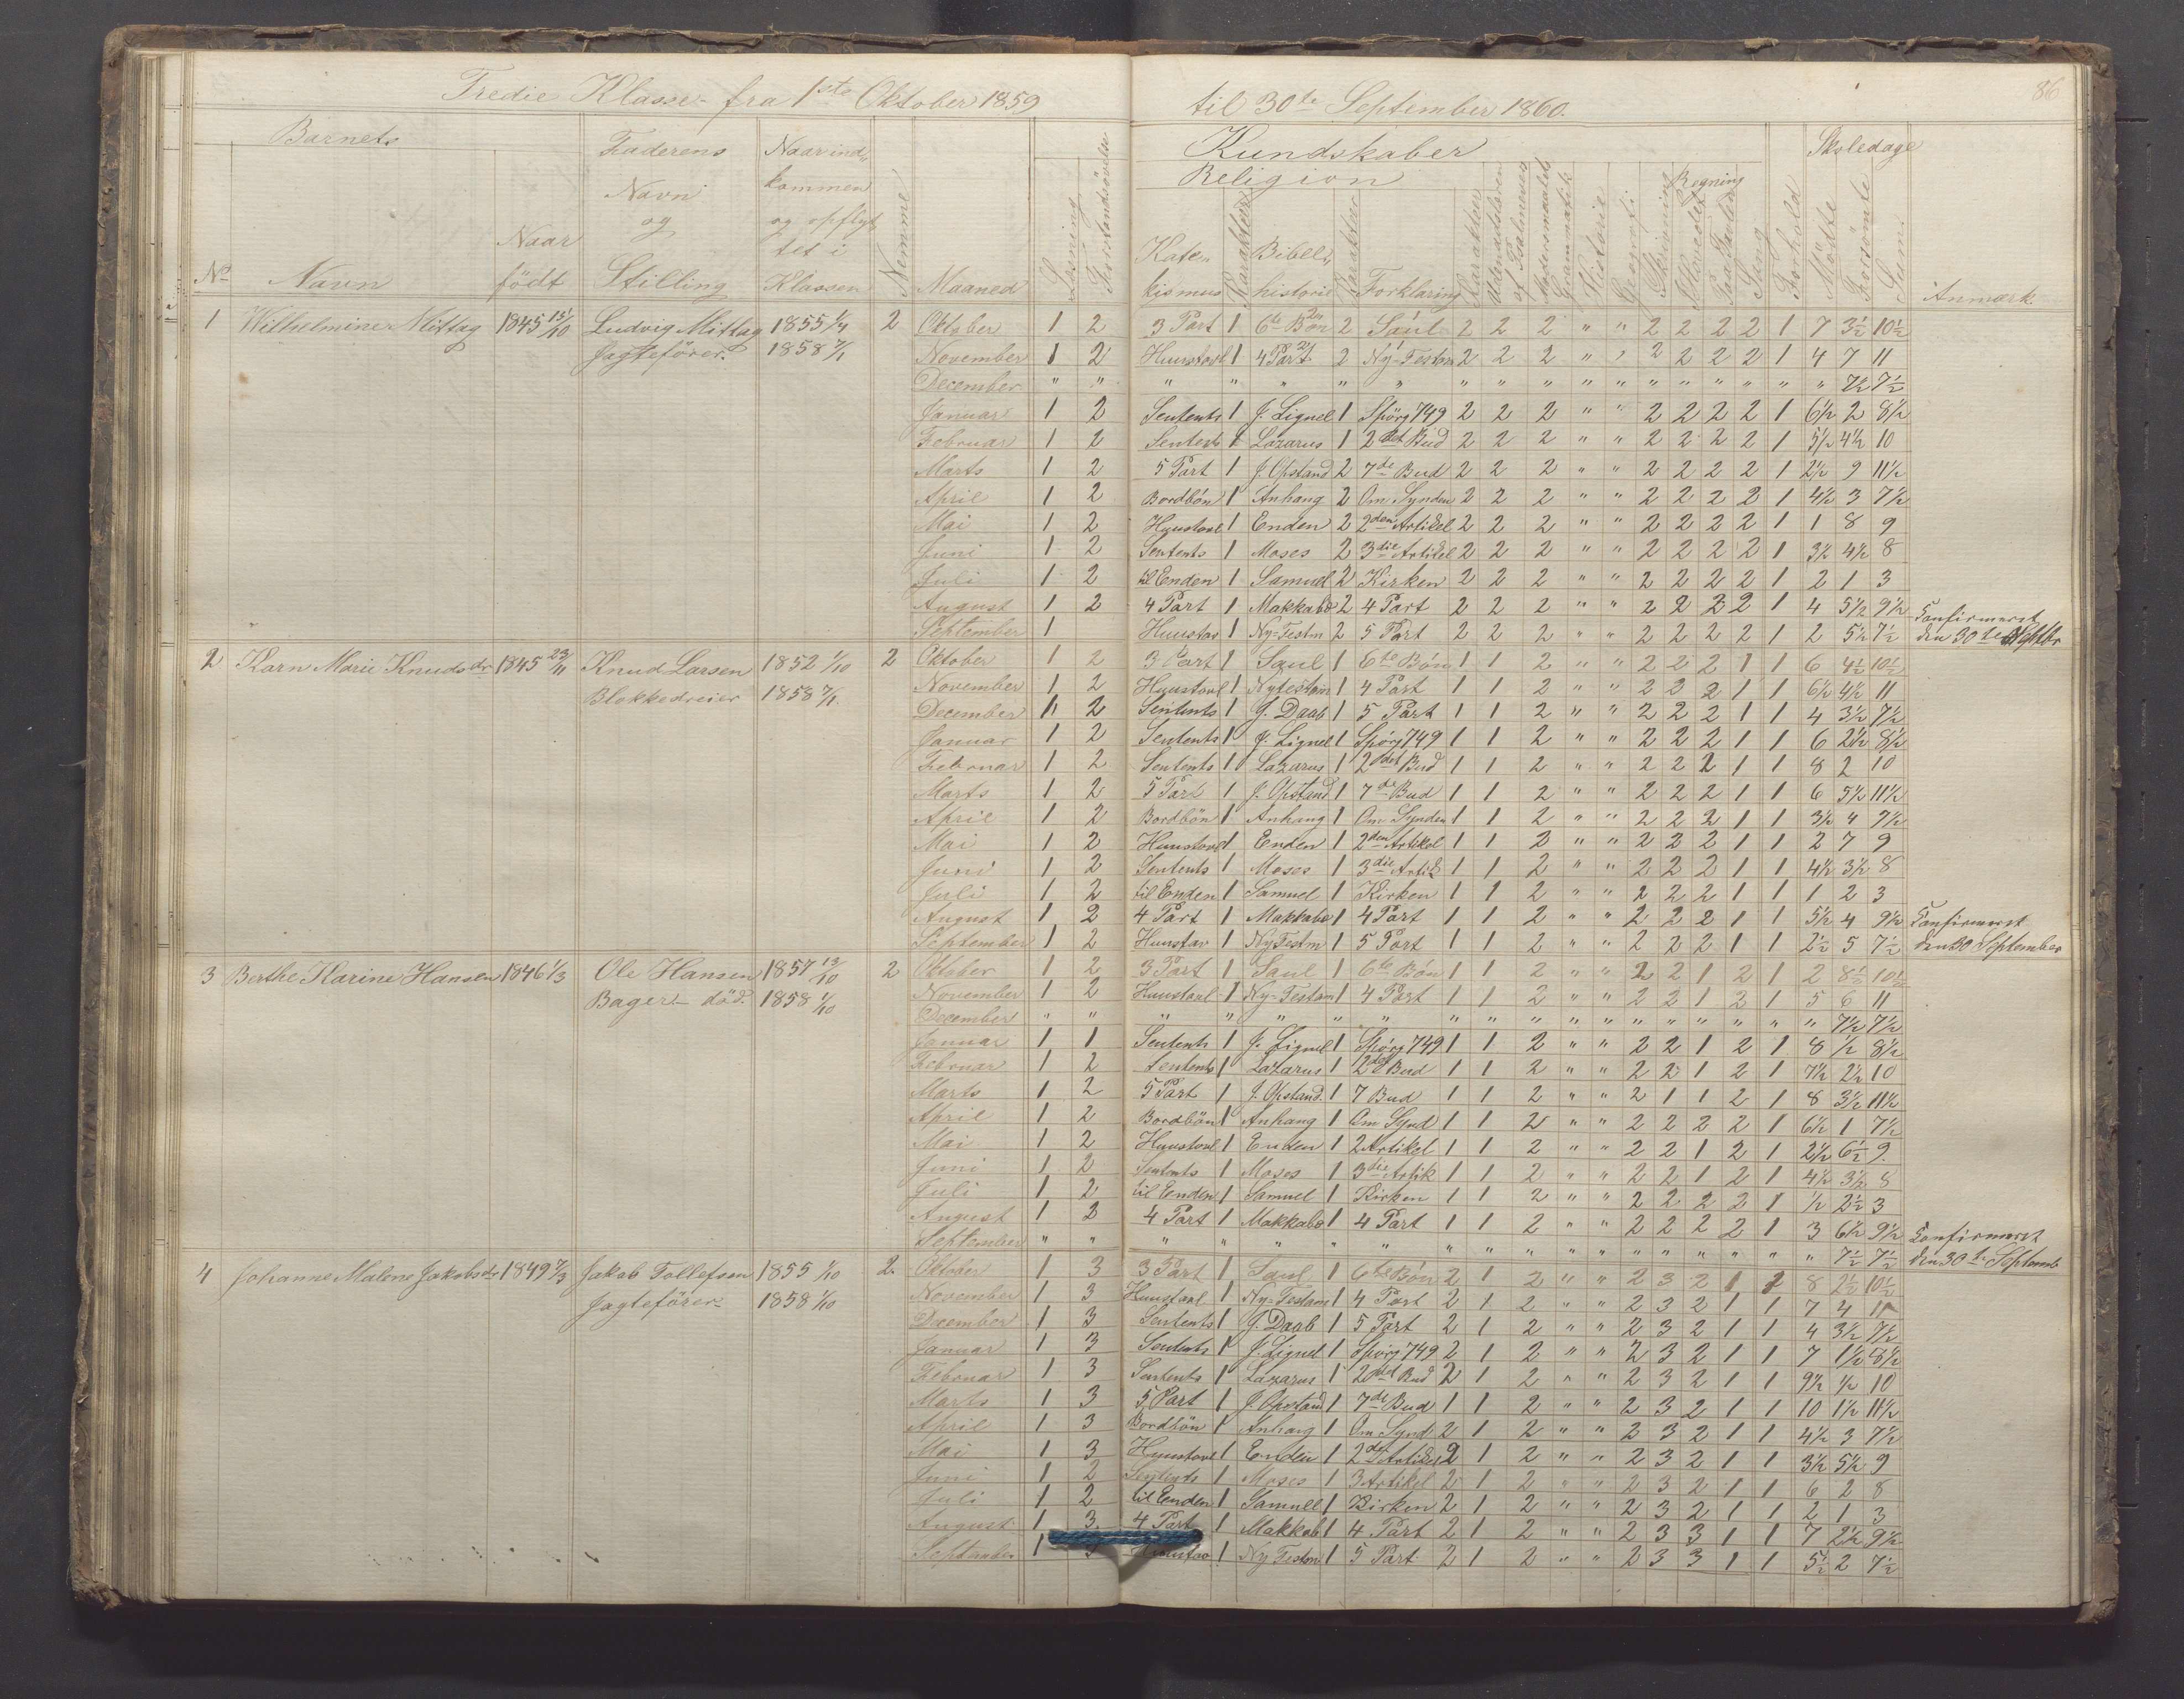 Tredie Klasse fra 1ste Oktober 1859 til 30te September 1860.
86
Barnets Faderens Naar ind- Kundskaber Skoledage
Navn kommen Religion Regning
og og opflyt
Naar tet i
No Navn født Stilling Klassen Nemme Maaned Læsning Forstandsøvelse Katekismus Karakter Bibelhistorie Karakter Forklaring Karakter Udenadslæren af Psalmevers Modersmaalets Grammatik Historie Geografi Skrivning Hovedet Paa Tavlen Sang Forhold Mødte Forsømte Sum Anmærk.
1 Wilhelmine Mittag 1845 15/10 Ludvig Mittag 1855 1/4 2 Oktober 1 2 3 Part 1 6te Bøn 2 Saul 2 2 2 " " 2 2 2 2 1 7 3½ 10½
Jagtefører. 1858 7/1 November 1 2 Huustavl 1 4 Part 2 Ny-Testam 2 2 2 " " 2 2 2 2 1 4 7 11
December " " " " " " " " " " " " " " " " " " 7½ 7½
Januar 1 2 Sentents 1 J. Lignel 1 Spörg 749 2 2 2 " " 2 2 2 2 1 6½ 2 8½
Februar 1 2 Sentents 1 Lazarus 1 2det Bud 2 2 2 " " 2 2 2 2 1 5½ 4½ 10
Marts 1 2 5 Part 1 J. Opstand 2 7de Bud 2 2 2 " " 2 2 2 2 1 2½ 9 11½
April 1 2 Bordbön 1 Anhang 2 Om Synden 2 2 2 " " 2 2 2 2 1 4½ 3 7½
Mai 1 2 Huustavl 1 Enden 2 2den Artikel 2 2 2 " " 2 2 2 2 1 1 8 9
Juni 1 2 Sentents 1 Moses 2 3die Artikel 2 2 2 " " 2 2 2 2 1 3½ 4½ 8
Juli 1 2 til Enden 1 Samuel 2 Kirken 2 2 2 " " 2 2 2 2 1 2 1 3
August 1 2 4 Part 1 Makkabæ 2 4 Part 2 2 2 " " 2 2 2 2 1 4 5½ 9½ Confirmeret
September 1 Huustav 1 Ny-Testm 2 5 Part 2 2 2 " " 2 2 2 2 1 2 5½ 7½ den 30te Septbr
2 Karn Marie Knudsdr 1845 23/11 Knud Larsen 1852 1/10 2 Oktober 1 2 3 Part 1 Saul 1 6te Bön 1 1 2 " " 2 2 2 1 1 6 4½ 10½
Blokkedreier 1858 7/1. November 1 2 Huustavl 1 Nytestam 1 4 Part 1 1 2 " " 2 2 2 1 1 6½ 4½ 11
December 1 2 Sentents 1 J. Daab 1 5 Part 1 1 2 " " 2 2 2 1 1 4 3½ 7½
Januar 1 2 Sentents 1 J. Lignel 1 Spörg 749 1 1 2 " " 2 2 2 1 1 6 2½ 8½
Februar 1 2 Sentents 1 Lazarus 1 2det Bud 1 1 2 " " 2 2 2 1 1 8 2 10
Marts 1 2 5 Part 1 J. Opstand 1 7de Bud 1 1 2 " " 2 2 2 1 1 6 5½ 11½
April 1 2 Bordbön 1 Anhang 1 Om Synden 1 1 2 " " 2 2 2 1 1 3½ 4 7½
Mai 1 2 Huustavl 1 Enden 1 2den Artikel 1 1 2 " " 2 2 2 1 1 2 7 9
Juni 1 2 Sentents 1 Moses 1 3die Artik 1 1 2 " " 2 2 2 1 1 4½ 3½ 8
Juli 1 2 til Enden 1 Samuel 1 Kirken 1 1 2 " " 2 2 2 1 1 1 2 3
August 1 2 4 Part 1 Makkabæ 1 4 Part 1 1 2 " " 2 2 2 1 1 5½ 4 9½ Confirmeret
September 1 2 Huustav 1 NyTestm 1 5 Part 1 1 2 " " 2 2 2 1 1 2½ 5 7½ den 30 September
3 Berthe Karine Hansen 1846 1/3 Ole Hansen 1857 13/10 2 Oktober 1 2 3 Part 1 Saul 1 6te Bön 1 1 2 " " 2 2 1 2 1 2 8½ 10½
Bager död. 1858 1/10 November 1 2 Huustavl 1 Ny-Testam 1 4 Part 1 1 2 " " 2 2 1 2 1 5 6 11
December " " " " " " " " " " " " " " " " " " 7½ 7½
Januar 1 1 Sentents 1 J. Lignel 1 Spörg 749 1 1 2 " " 2 2 1 2 1 8 ½ 8½
Februar 1 2 Sentents 1 Lazarus 1 2det Bud 1 1 2 " " 2 2 1 2 1 7½ 2½ 10
Marts 1 2 5 Part 1 J. Opstand. 1 7 Bud 1 1 2 " " 2 1 1 2 1 8 3½ 11½
April 1 2 Bordbön 1 Anhang 1 Om Synd 1 1 2 " " 2 2 2 2 1 6½ 1 7½
Mai 1 2 Huustavl 1 Enden 1 2 Artikel 1 1 2 " " 2 2 1 2 1 2½ 6½ 9
Juni 1 2 Sentents 1 Moses 1 3die Artik 1 1 2 " " 2 2 1 2 1 4½ 3½ 8
Juli 1 2 til Enden 1 Samuel 1 Kirken 1 1 2 " " 2 2 2 2 1 ½ 2½ 3
August 1 2 4 Part 1 Makkabæ 1 4 Part 1 1 2 " " 2 2 2 2 1 3 6½ 9½ Confirmeret
September " " " " " " " " " " " " " " " " " " 7½ 7½ den 30te Septemb
4 Johanne Malene Jakobsdr 1849 7/3 Jakob Tollefsen 1855 1/10 2. Oktober 1 3 3 Part 1 Saul 1 6te Bön 2 1 2 " " 2 3 2 1 1 8 2½ 10½
Jagtefører 1858 1/10 November 1 3 Huustavl 1 Ny-Testam 1 4 Part 2 1 2 " " 2 3 2 1 1 7 4 11
December 1 3 Sentents 1 J. Daab 1 5 Part 2 1 2 " " 2 3 2 1 1 4 3½ 7½
Januar 1 3 Sentents 1 J. Lignel 1 Spörg 749 2 1 2 " " 2 3 2 1 1 7 1½ 8½
Februar 1 3 Sentents 1 Lazarus 1 2det Bud 2 1 2 " " 2 3 2 1 1 9½ ½ 10
Marts 1 3 5 Part 1 J. Opstand 1 7de Bud 1 1 2 " " 2 3 2 1 1 10 1½ 11½
April 1 3 Bordbön 1 Anhang 1 Om Synd 2 1 2 " " 2 3 2 1 1 4½ 3 7½
Mai 1 3 Huustavl 1 Enden 1 2d Artikel 2 1 2 " " 2 3 2 1 1 3½ 5½ 9
Juni 1 2 Sentents 1 Moses 1 3 Artikel 2 1 2 " " 2 3 2 1 1 6 2 8
Juli 1 2 til Enden 1 Samuel 1 Kirken 2 1 2 " " 2 3 2 1 1 2 1 3
August 1 3. 4 Part 1 Makkab 1 4 Part 2 1 2 " " 2 3 3 1 1 7 2½ 9½
September 1 Huustav 1 Ny Testm 1 5 Part 2 1 2 " " 2 3 3 1 1 5½ 2 7½